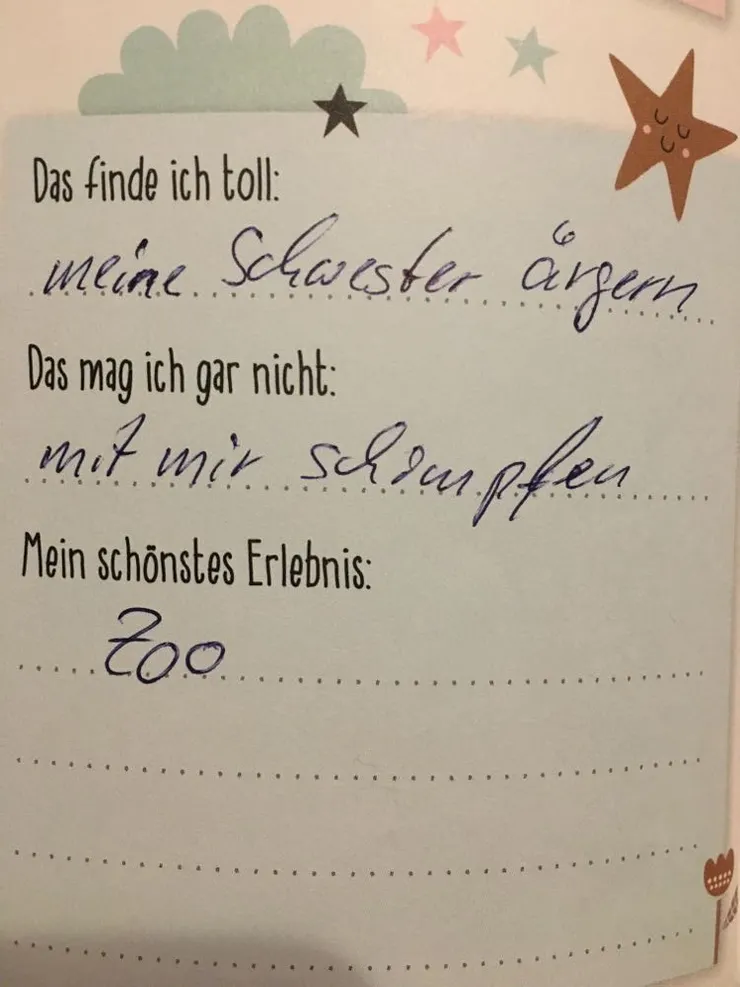 Das finde ich toll:
meine Schwester ärgern
Das mag ich gar nicht:
mit mir schimpfen
Mein schönstes Erlebnis:
Zoo